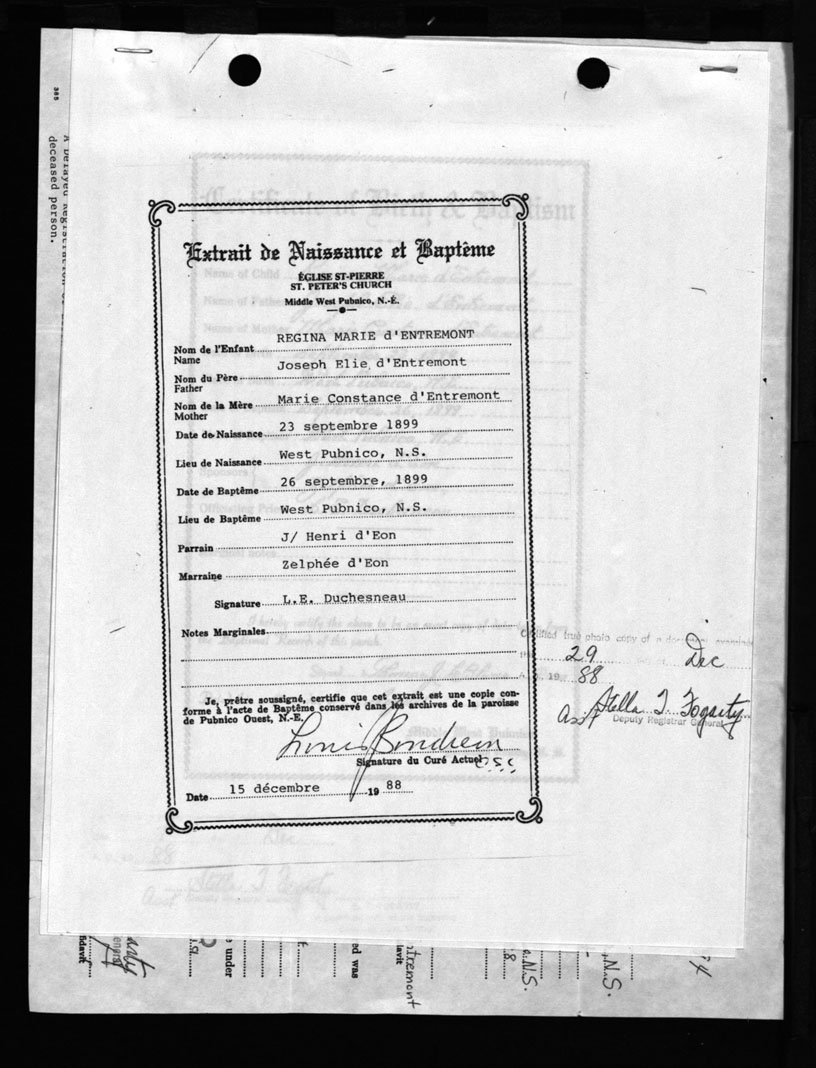 deceased person.
Certificate of Birth & Baptism
Extrait de Naissance et Baptême
ÉGLISE ST-PIERRE
ST. PETER'S CHURCH
Middle West Pubnico, N.-É.
Nom de l'Enfant REGINA MARIE d'ENTREMONT
Name
Nom du Père Joseph Elie d'Entremont
Father
Nom de la Mère Marie Constance d'Entremont
Mother
Date de Naissance 23 septembre 1899
Lieu de Naissance West Pubnico, N.S.
Date de Baptême 26 septembre, 1899
Lieu de Baptême West Pubnico, N.S.
Parrain J/ Henri d'Eon
Marraine Zelphée d'Eon
Signature L.E. Duchesneau
Notes Marginales
Je, prêtre soussigné, certifie que cet extrait est une copie con-
forme à l'acte de Baptême conservé dans les archives de la paroisse
de Pubnico Ouest, N.-E.
Signature du Curé Actuel
Date 15 décembre 19 88
Certified true photo copy of a
29 Dec
19 88
Stella T. Fogarty
Asst Deputy Registrar General